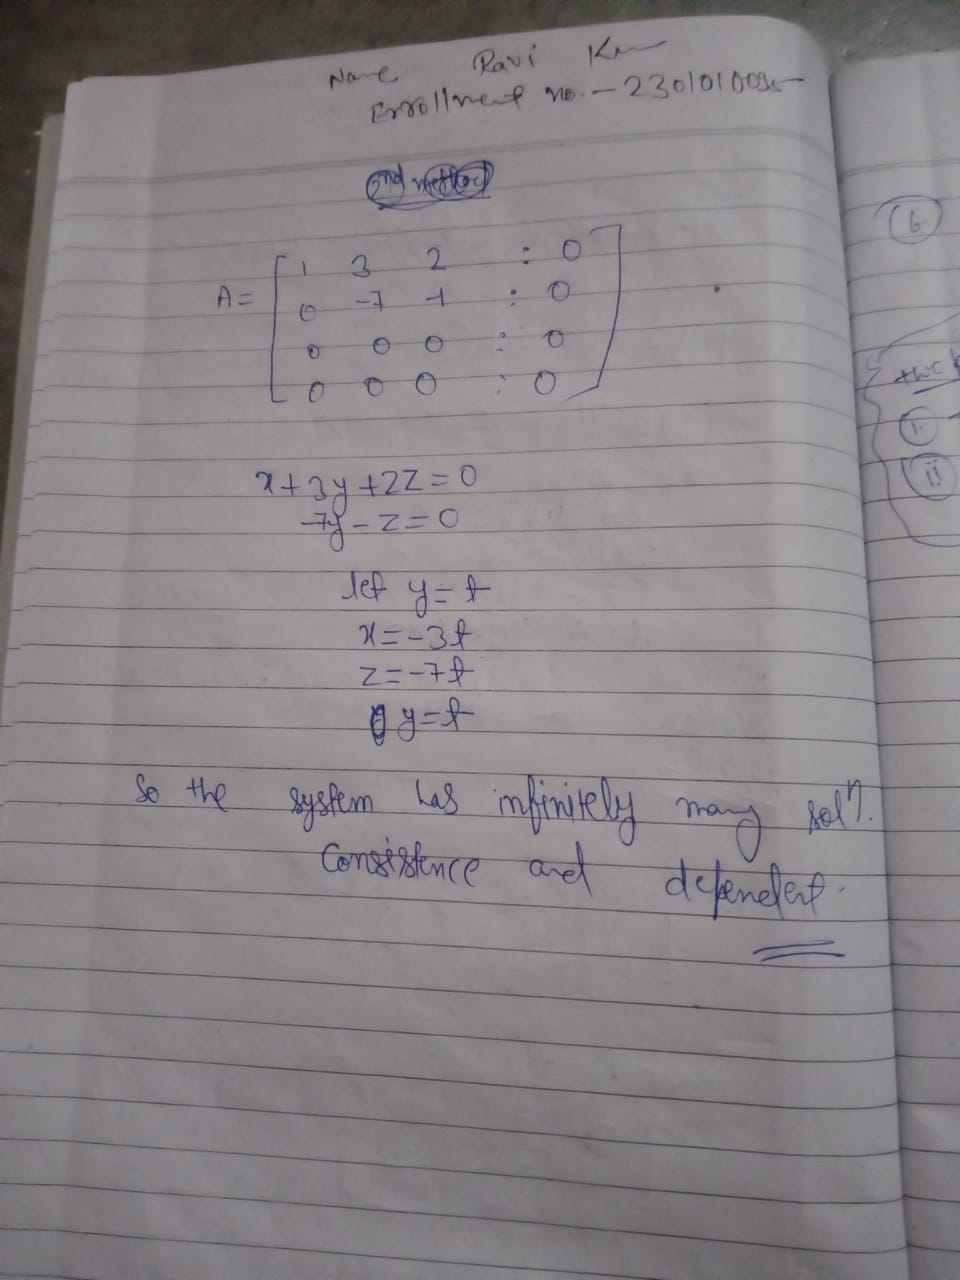 Name Ravi
Enrollment no. -
2nd method
A = [ 1 3 2 : 0
0 -7 -1 : 0
0 0 0 : 0
0 0 0 : 0 ]
x + 3y + 2z = 0
-7y - z = 0
let y = t
x = -3t
z = -7t
y = t
So the system has infinitely many solⁿ.
Consistence and dependent.
6
two
i
ii